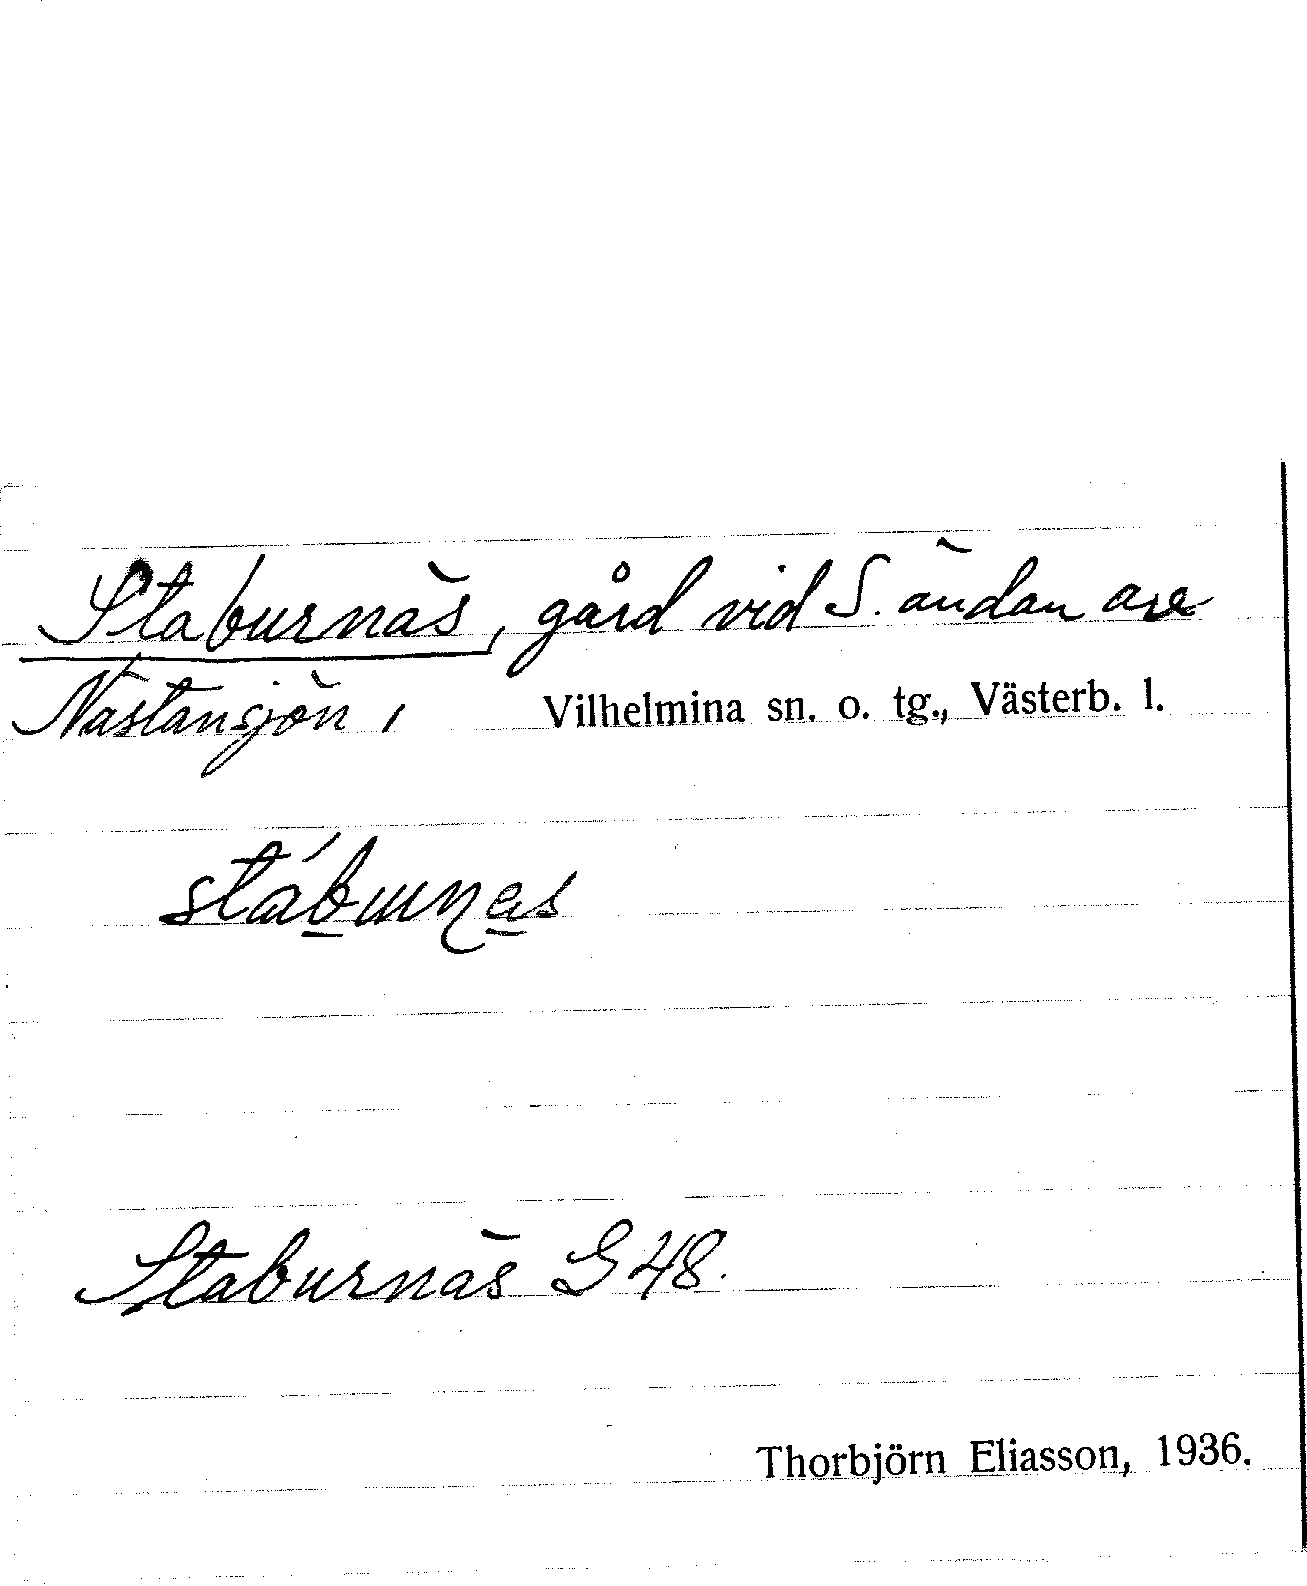 Staburnäs, gård vid S. ändan av
Nästansjön, Vilhelmina sn. o. tg., Västerb. l.
Staburnäs G 48.
Thorbjörn Eliasson, 1936.